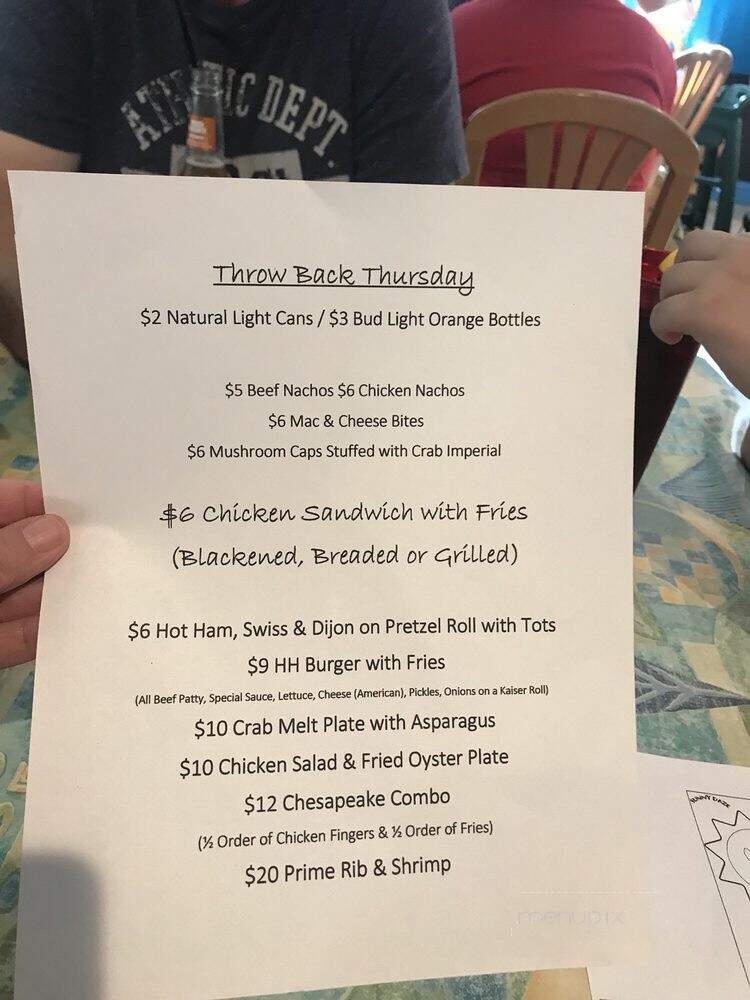 ATHLETIC DEPT.
Throw Back Thursday
$2 Natural Light Cans / $3 Bud Light Orange Bottles
$5 Beef Nachos $6 Chicken Nachos
$6 Mac & Cheese Bites
$6 Mushroom Caps Stuffed with Crab Imperial
$6 Chicken Sandwich with Fries
(Blackened, Breaded or Grilled)
$6 Hot Ham, Swiss & Dijon on Pretzel Roll with Tots
$9 HH Burger with Fries
(All Beef Patty, Special Sauce, Lettuce, Cheese (American), Pickles, Onions on a Kaiser Roll)
$10 Crab Melt Plate with Asparagus
$10 Chicken Salad & Fried Oyster Plate
$12 Chesapeake Combo
(½ Order of Chicken Fingers & ½ Order of Fries)
$20 Prime Rib & Shrimp
menupix